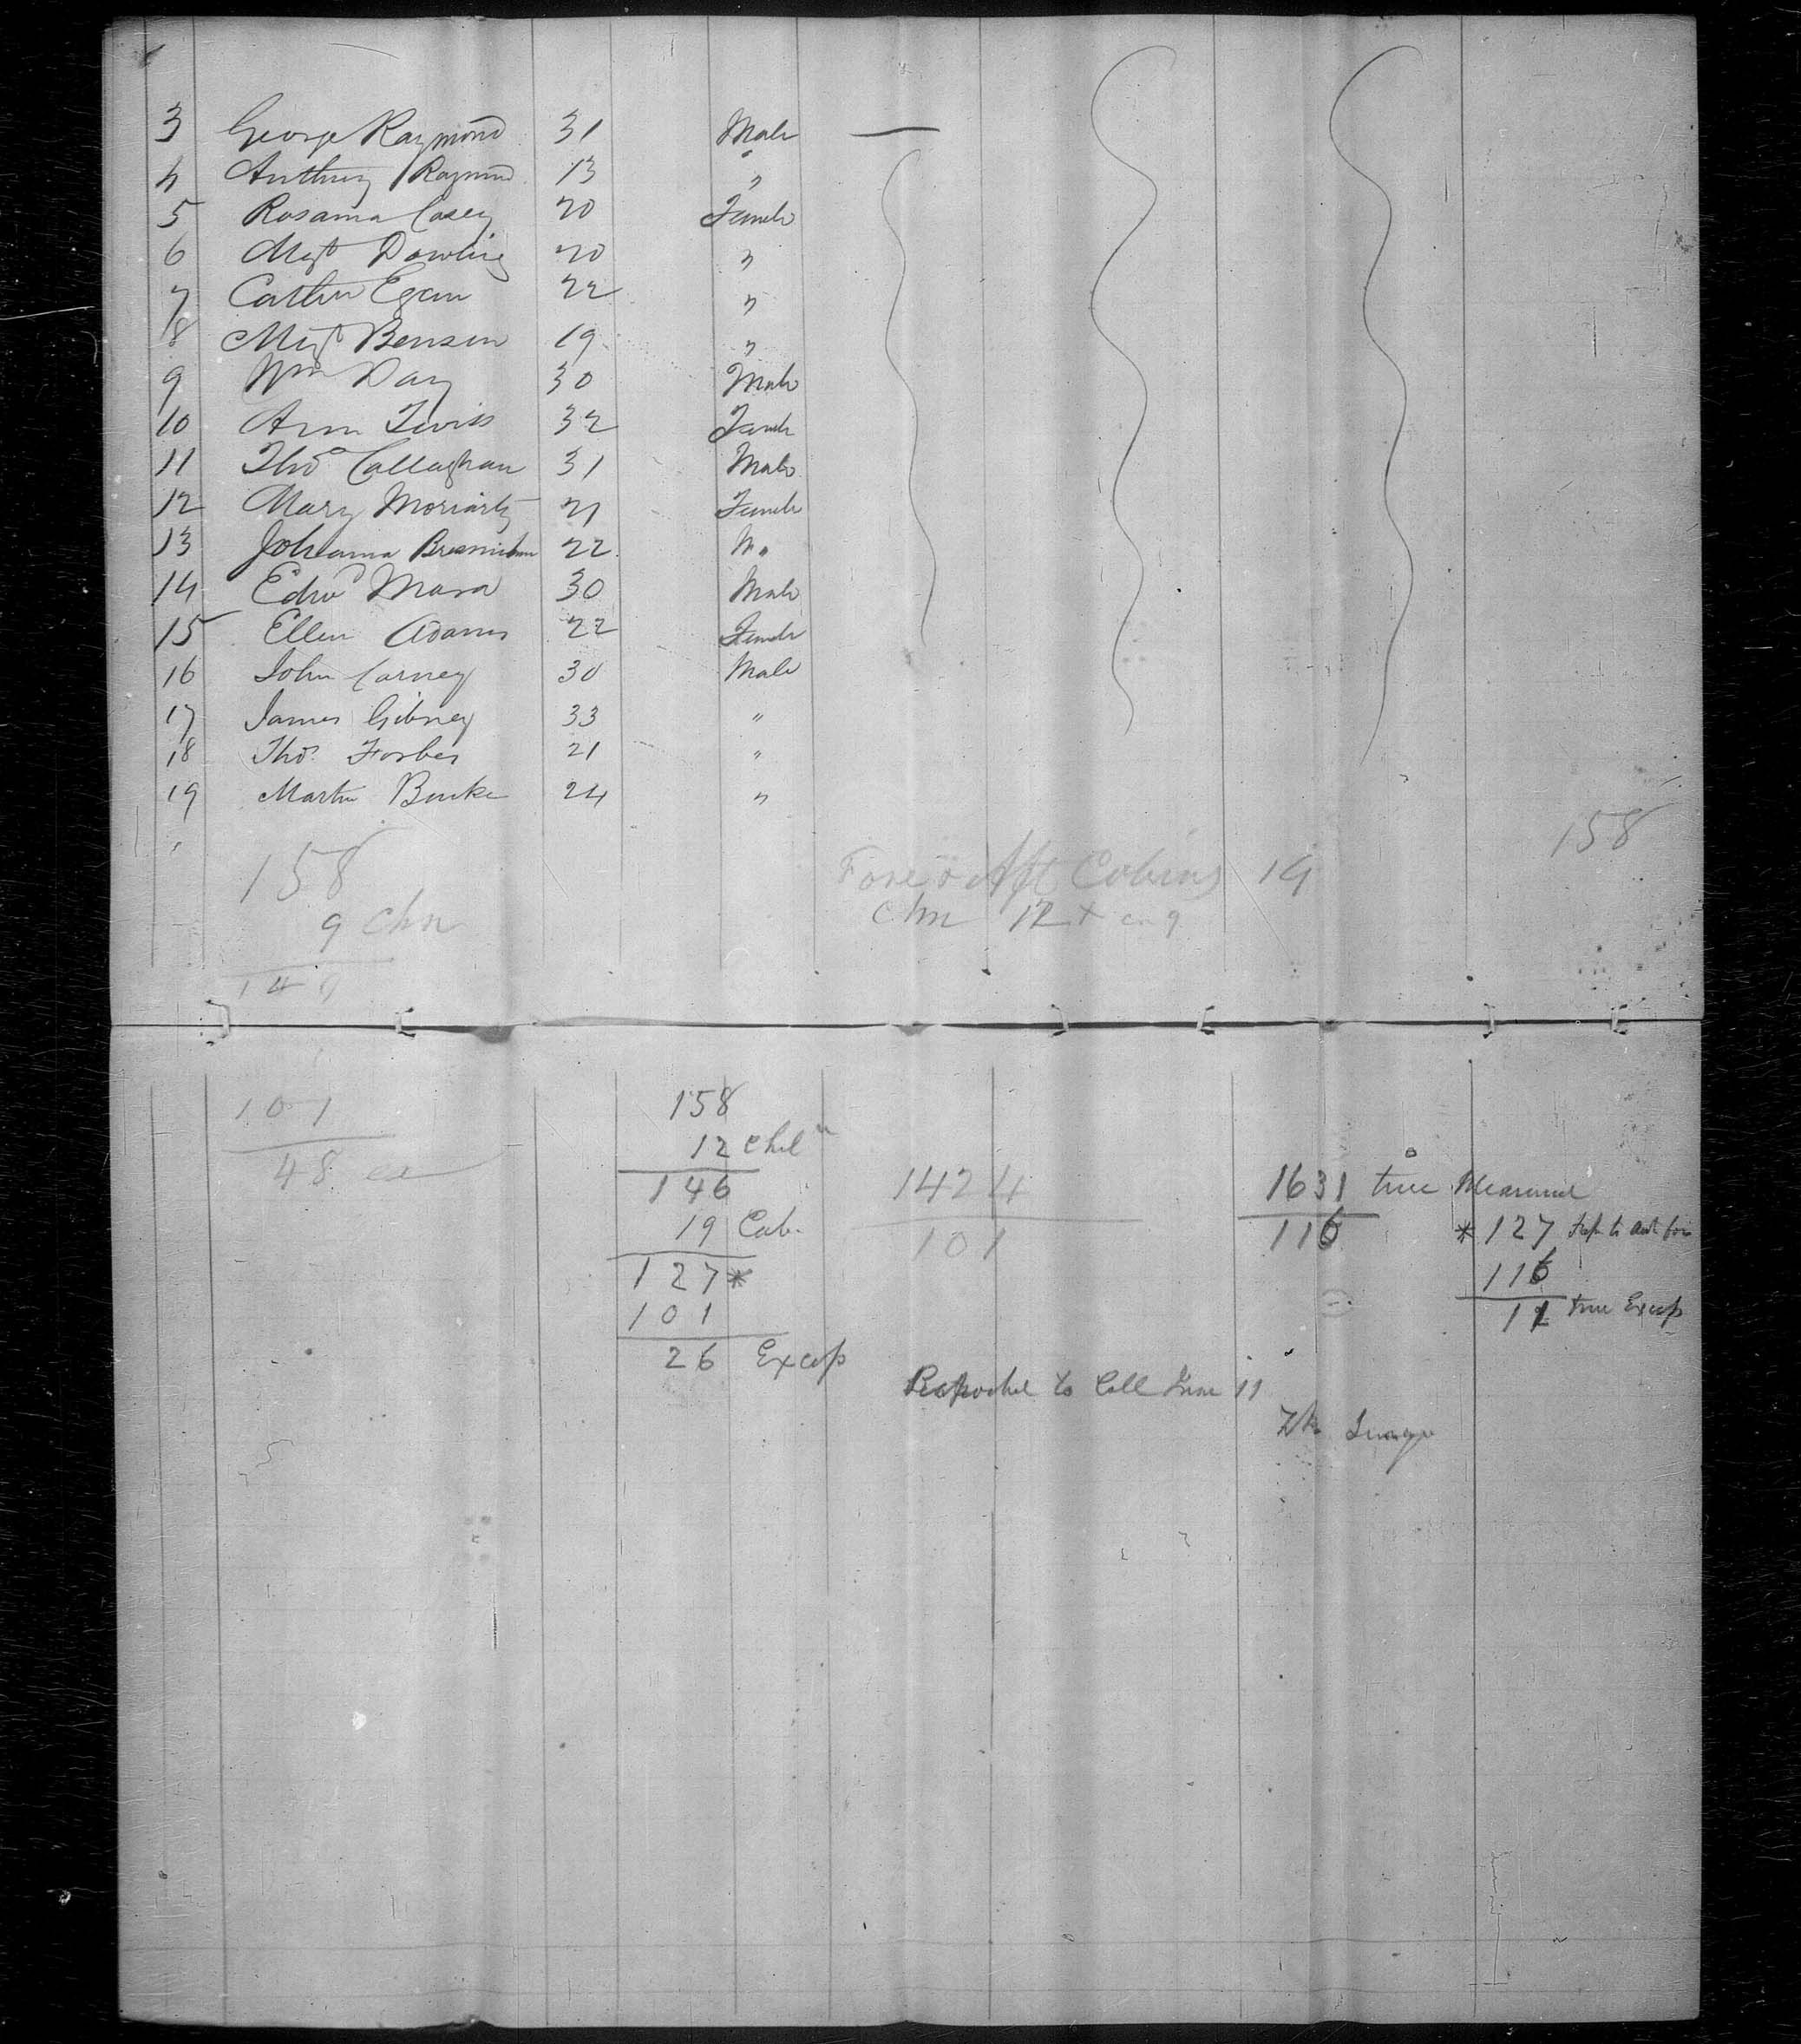 3 George Raymond 31 Male —
4 Anthony Raymond 13 "
5 Rosanna Casey 20 Female
6 Mgt Dowling 20 "
7 Cathn Egan 22 "
8 Mgt Benson 19 "
9 Wm Day 30 Male
10 Ann Twiss 32 Female
11 Thos Callaghan 31 Male
12 Mary Moriarty 21 Female
13 Johanna Bresnihan 22
14 Edwd Mara 30 Male
15 Ellen Adams 22 Female
16 John Carney 30 Male
17 James Gibney 33 "
18 Thos. Forbes 21 "
19 Martin Burke 24 "
158
158 Fore & Aft Cabins 19
9 Chn Chn 12
149
101
48
158
12 Chdn
146
19 Cab.
127*
101
26 Excess
1424
101
1631 true Measurmt
116
*127
116
11 true Excess
Reported to Coll June 11